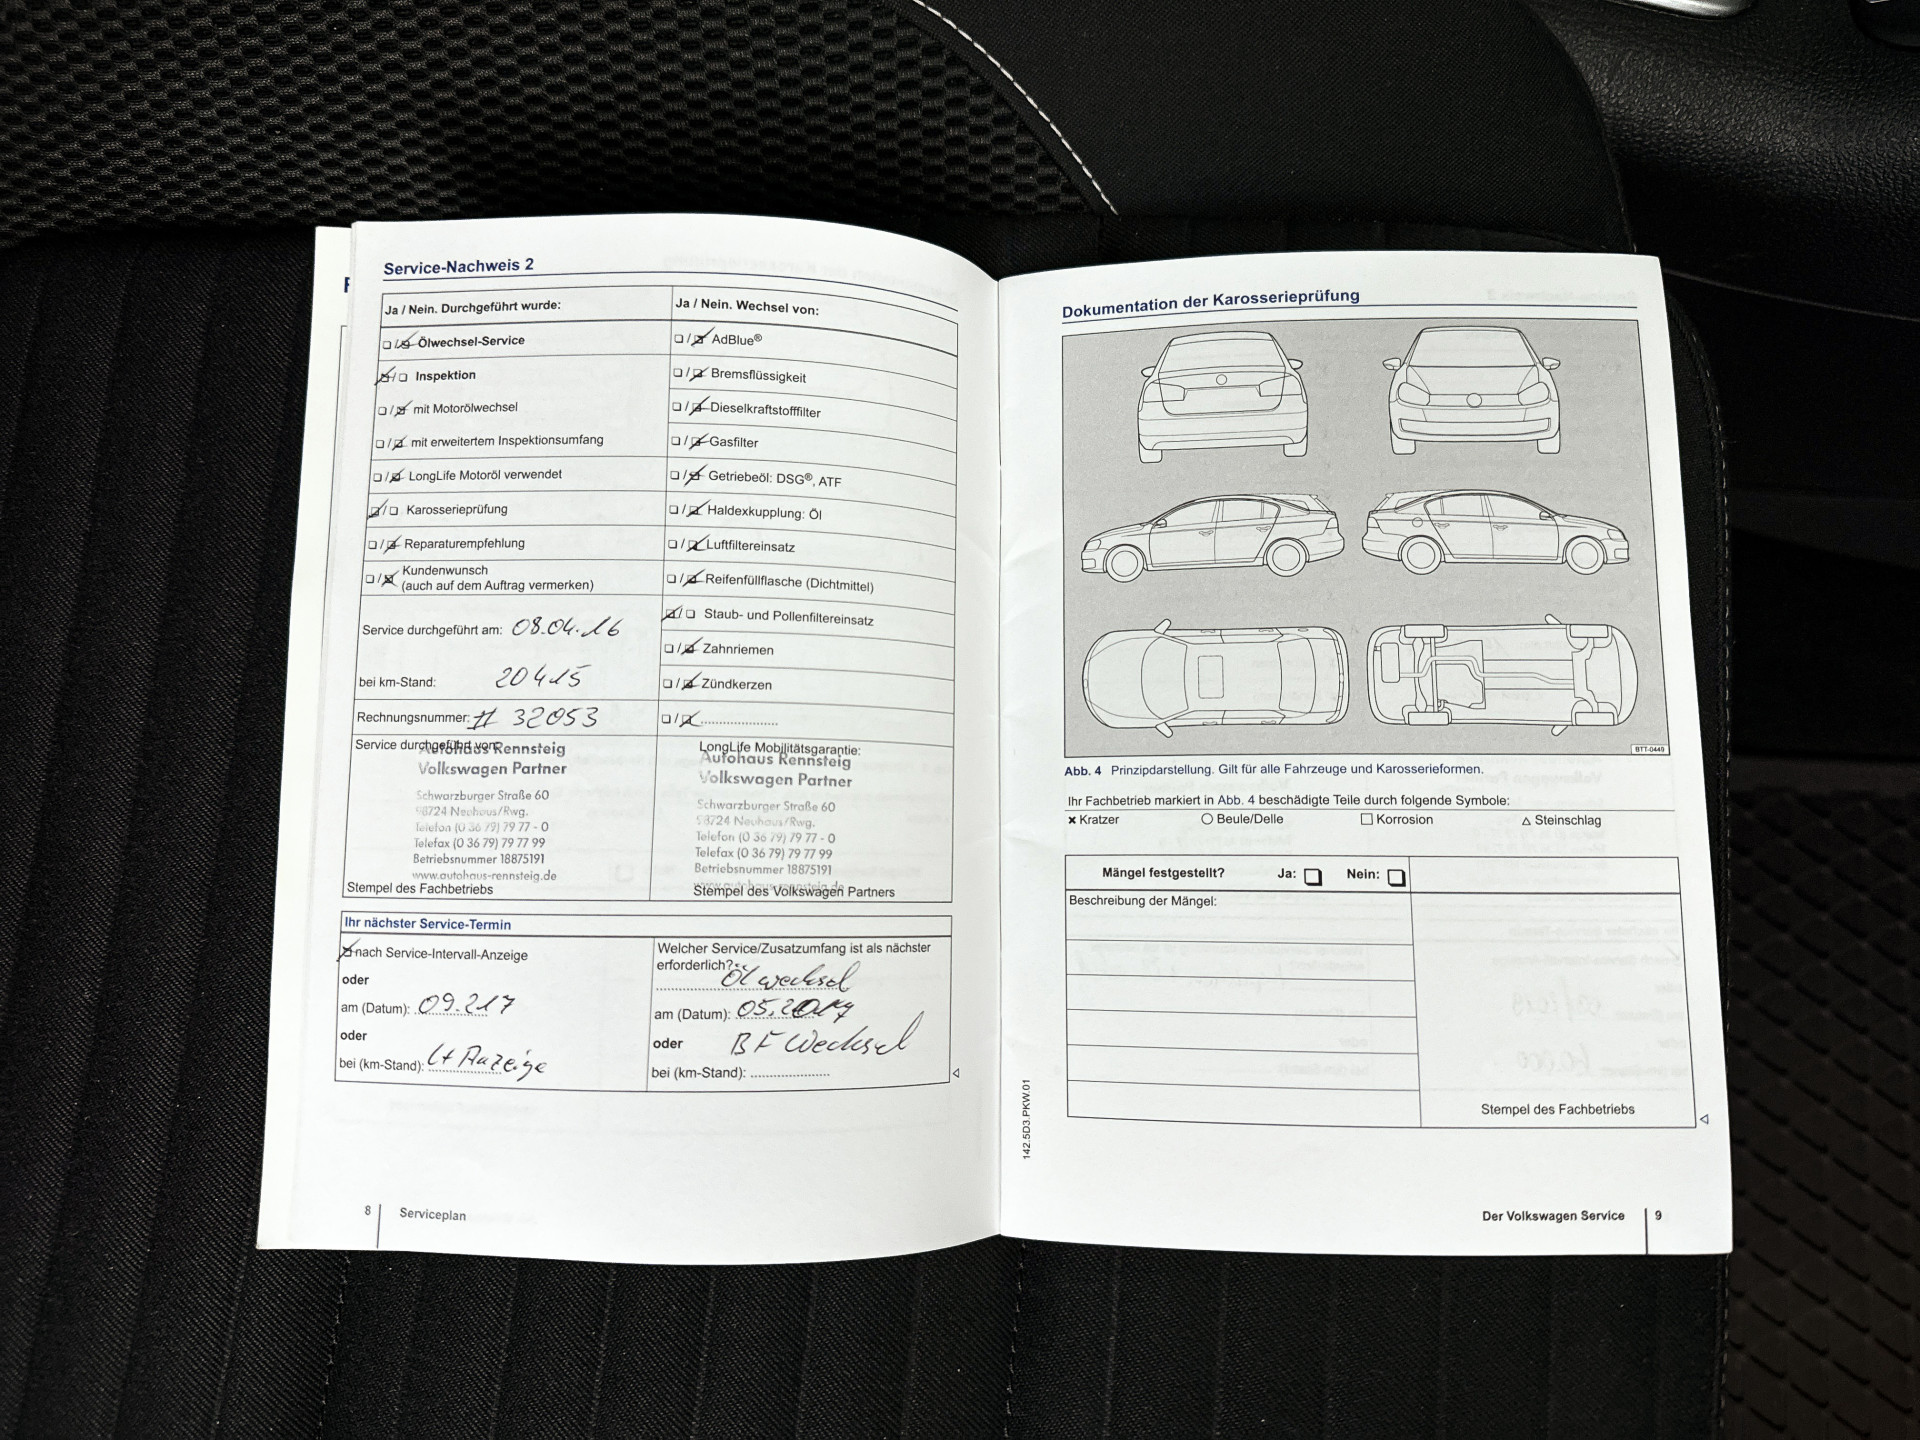 Service-Nachweis 2
Ja / Nein. Durchgeführt wurde:
Ölwechsel-Service
Inspektion
mit Motorölwechsel
mit erweitertem Inspektionsumfang
LongLife Motoröl verwendet
Karosserieprüfung
Reparaturempfehlung
Kundenwunsch
(auch auf dem Auftrag vermerken)
Service durchgeführt am: 08.04.16
bei km-Stand: 20415
Rechnungsnummer: # 32053
Service durchgeführt von:
Autohaus Rennsteig
Volkswagen Partner
Schwarzburger Straße 60
98724 Neuhaus/Rwg.
Telefon (0 36 79) 79 77 - 0
Telefax (0 36 79) 79 77 99
Betriebsnummer 18875191
www.autohaus-rennsteig.de
Stempel des Fachbetriebs
Ja / Nein. Wechsel von:
AdBlue®
Bremsflüssigkeit
Dieselkraftstofffilter
Gasfilter
Getriebeöl: DSG®, ATF
Haldexkupplung: Öl
Luftfiltereinsatz
Reifenfüllflasche (Dichtmittel)
Staub- und Pollenfiltereinsatz
Zahnriemen
Zündkerzen
LongLife Mobilitätsgarantie:
Autohaus Rennsteig
Volkswagen Partner
Schwarzburger Straße 60
98724 Neuhaus/Rwg.
Telefon (0 36 79) 79 77 - 0
Telefax (0 36 79) 79 77 99
Betriebsnummer 18875191
www.autohaus-rennsteig.de
Stempel des Volkswagen Partners
Ihr nächster Service-Termin
nach Service-Intervall-Anzeige
oder
am (Datum): 09.217
oder
bei (km-Stand): Lt Anzeige
Welcher Service/Zusatzumfang ist als nächster
erforderlich?
Ölwechsel
am (Datum): 05.2017
oder BF Wechsel
bei (km-Stand):
8 Serviceplan
Dokumentation der Karosserieprüfung
BTT-0449
Abb. 4 Prinzipdarstellung. Gilt für alle Fahrzeuge und Karosserieformen.
Ihr Fachbetrieb markiert in Abb. 4 beschädigte Teile durch folgende Symbole:
× Kratzer ○ Beule/Delle □ Korrosion △ Steinschlag
Mängel festgestellt? Ja: Nein:
Beschreibung der Mängel:
Stempel des Fachbetriebs
142.5D3.PKW.01
Der Volkswagen Service 9